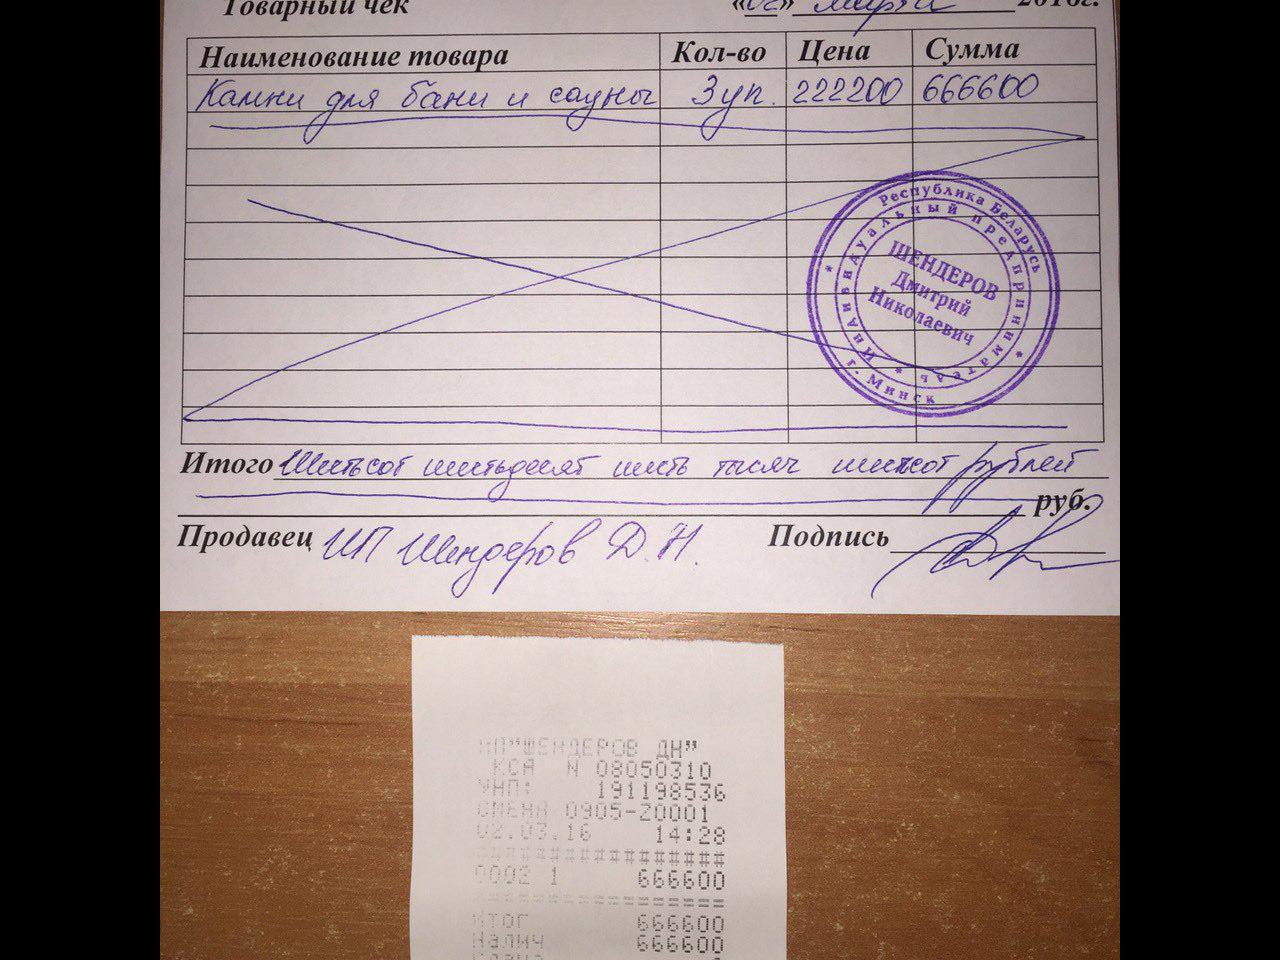 Товарный чек «02» марта 2016г.
Наименование товара Кол-во Цена Сумма
Камни для бани и сауны 3 уп. 222200 666600
Республика Беларусь
Индивидуальный предприниматель
ШЕНДЕРОВ
Дмитрий
Николаевич
г. Минск
Итого Шестьсот шестьдесят шесть тысяч шестьсот рублей
руб.
Продавец ИП Шендеров Д.Н. Подпись
ИП"ШЕНДЕРОВ ДН"
КСА N 08050310
УНП: 191198536
СМЕНА 0905-Z0001
02.03.16 14:28
################
0002 1 666600
================
ИТОГ 666600
Налич 666600